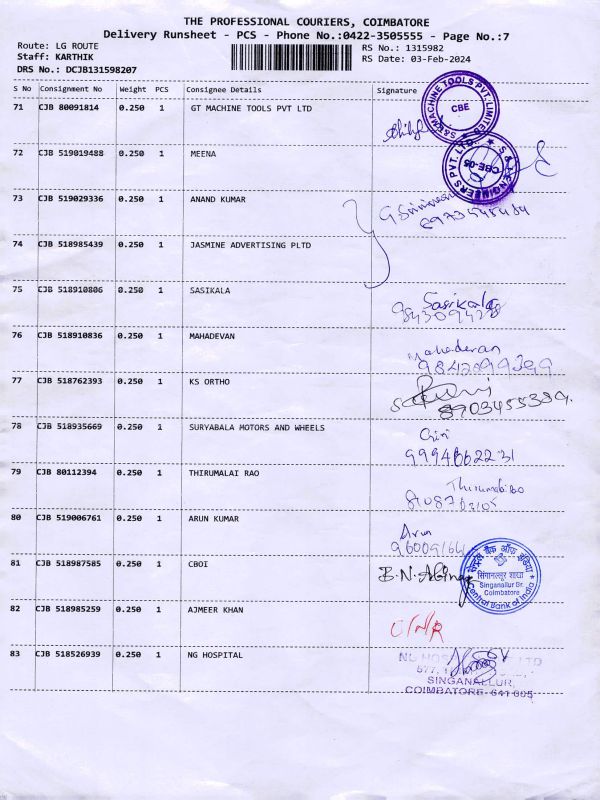 THE PROFESSIONAL COURIERS, COIMBATORE
Delivery Runsheet - PCS - Phone No.:0422-3505555 - Page No.:7
Route: LG ROUTE RS No.: 1315982
Staff: KARTHIK RS Date: 03-Feb-2024
DRS No.: DCJB131598207
S No Consignment No Weight PCS Consignee Details Signature
71 CJB 80091814 0.250 1 GT MACHINE TOOLS PVT LTD
CBE
72 CJB 519019488 0.250 1 MEENA
CBE-05
73 CJB 519029336 0.250 1 ANAND KUMAR
74 CJB 518985439 0.250 1 JASMINE ADVERTISING PLTD
75 CJB 518910806 0.250 1 SASIKALA Sasikala
76 CJB 518910836 0.250 1 MAHADEVAN Mahadevan
77 CJB 518762393 0.250 1 KS ORTHO
78 CJB 518935669 0.250 1 SURYABALA MOTORS AND WHEELS
9994662231
79 CJB 80112394 0.250 1 THIRUMALAI RAO
80 CJB 519006761 0.250 1 ARUN KUMAR Arun
81 CJB 518987585 0.250 1 CBOI
सेन्ट्रल बैंक ऑफ इंडिया
सिंगानल्लूर शाखा
Singanallur Br.
Coimbatore
Central Bank of India
82 CJB 518985259 0.250 1 AJMEER KHAN
83 CJB 518526939 0.250 1 NG HOSPITAL
SINGANALLUR,
COIMBATORE-641 005